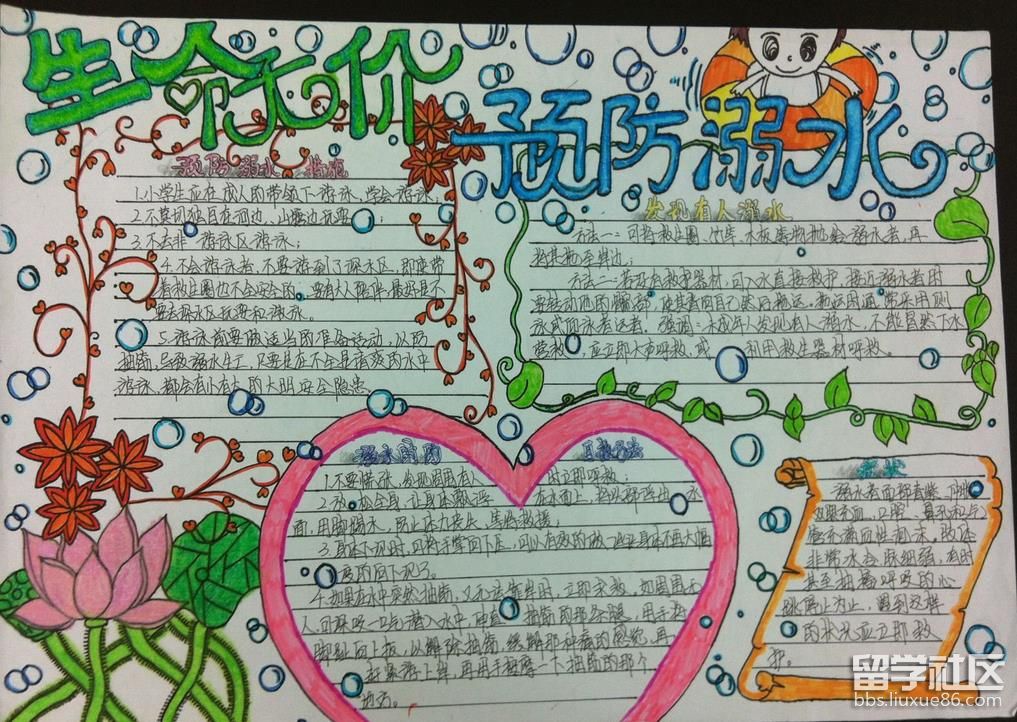 生命无价
预防溺水
预防溺水 措施
1.小学生应在成人的带领下游泳,学会游泳;
2.不要独自在河边、山塘边玩耍;
3.不去非游泳区游泳;
4.不会游泳者,不要游到了深水区,即使带
有救生圈也不会安全的。要有大人陪伴
要去深水区玩耍和游泳。
5.游泳前要做适当的准备活动,以防
抽筋,导致溺水
游泳,都会有 的 安全隐患
发现有人溺水
方法一:可将救生圈、竹竿、木板等物抛给溺水者,再
将其拖至岸边;
方法二:若没有救护器材,可入水直接救护。接近溺水者时
要转动他的髋部,使其背向自己然后拖运。拖运时通常采用侧
泳或仰泳拖运法。强调:未成年人发现有人溺水,不能冒然下水
营救,应立即大声呼救,或 利用救生器材呼救。
溺水时的 自救方法
1.不要慌张,发现周围有人 时立即呼救;
2.放松全身,让身体飘浮 在水面上,将头部浮出 水
面,用脚踢水,防止体力丧失,等待救援;
3.身体下沉时,可将手掌向下压,可以有效的
度的向下沉了。
4.如果在水中突然抽筋,又无法靠岸时,立即求救。如周围无
人,可深吸一口气潜入水中,伸直 抽筋的那条腿,用手将
脚趾向上扳,以解除抽筋。缓解那种 再
赶紧游上岸,再用手按摩一下抽筋的那个
地方。
症状
溺水者面部青紫、肿胀
双眼充血,口腔、鼻孔和气
管充满血性泡沫。肢体
非常冰冷 脉细弱,有时
甚至抽搐 呼吸的心
跳停止为止,遇到这样
的状况应立即救
护。
留学社区
bbs.liuxue86.com